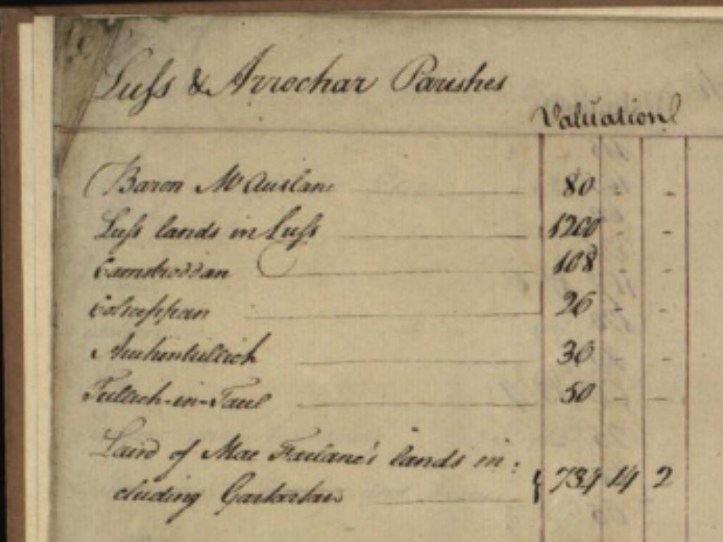 Luss & Arrochar Parishes
Valuation
Baron McAuslan 80 - -
Luss lands in Luss 1200 - -
Camstroddan 108 - -
26 - -
Auchintullich 30 - -
Tullich-in-Taul 50 - -
Laird of Mac Farlane's lands in:
cluding Gartartan 734 14 2